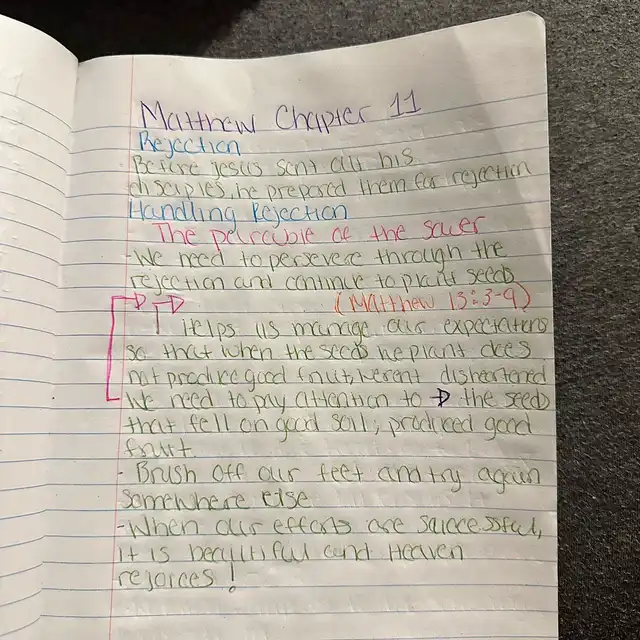 Matthew Chapter 11
Rejection
Before jesus sent all his
disciples, he prepared them for rejection
Handling Rejection
The parable of the sower
-We need to persevere through the
rejection and continue to plant seeds
(Matthew 13:3-9)
Helps us manage our expectations
so that when the seeds we plant does
not produce good fruit, werent disheartened
We need to pay attention to → the seeds
that fell on good soil; produced good
fruit
- Brush off our feet and try again
somewhere else
-When our efforts are successful,
it is beautiful and Heaven
rejoices!